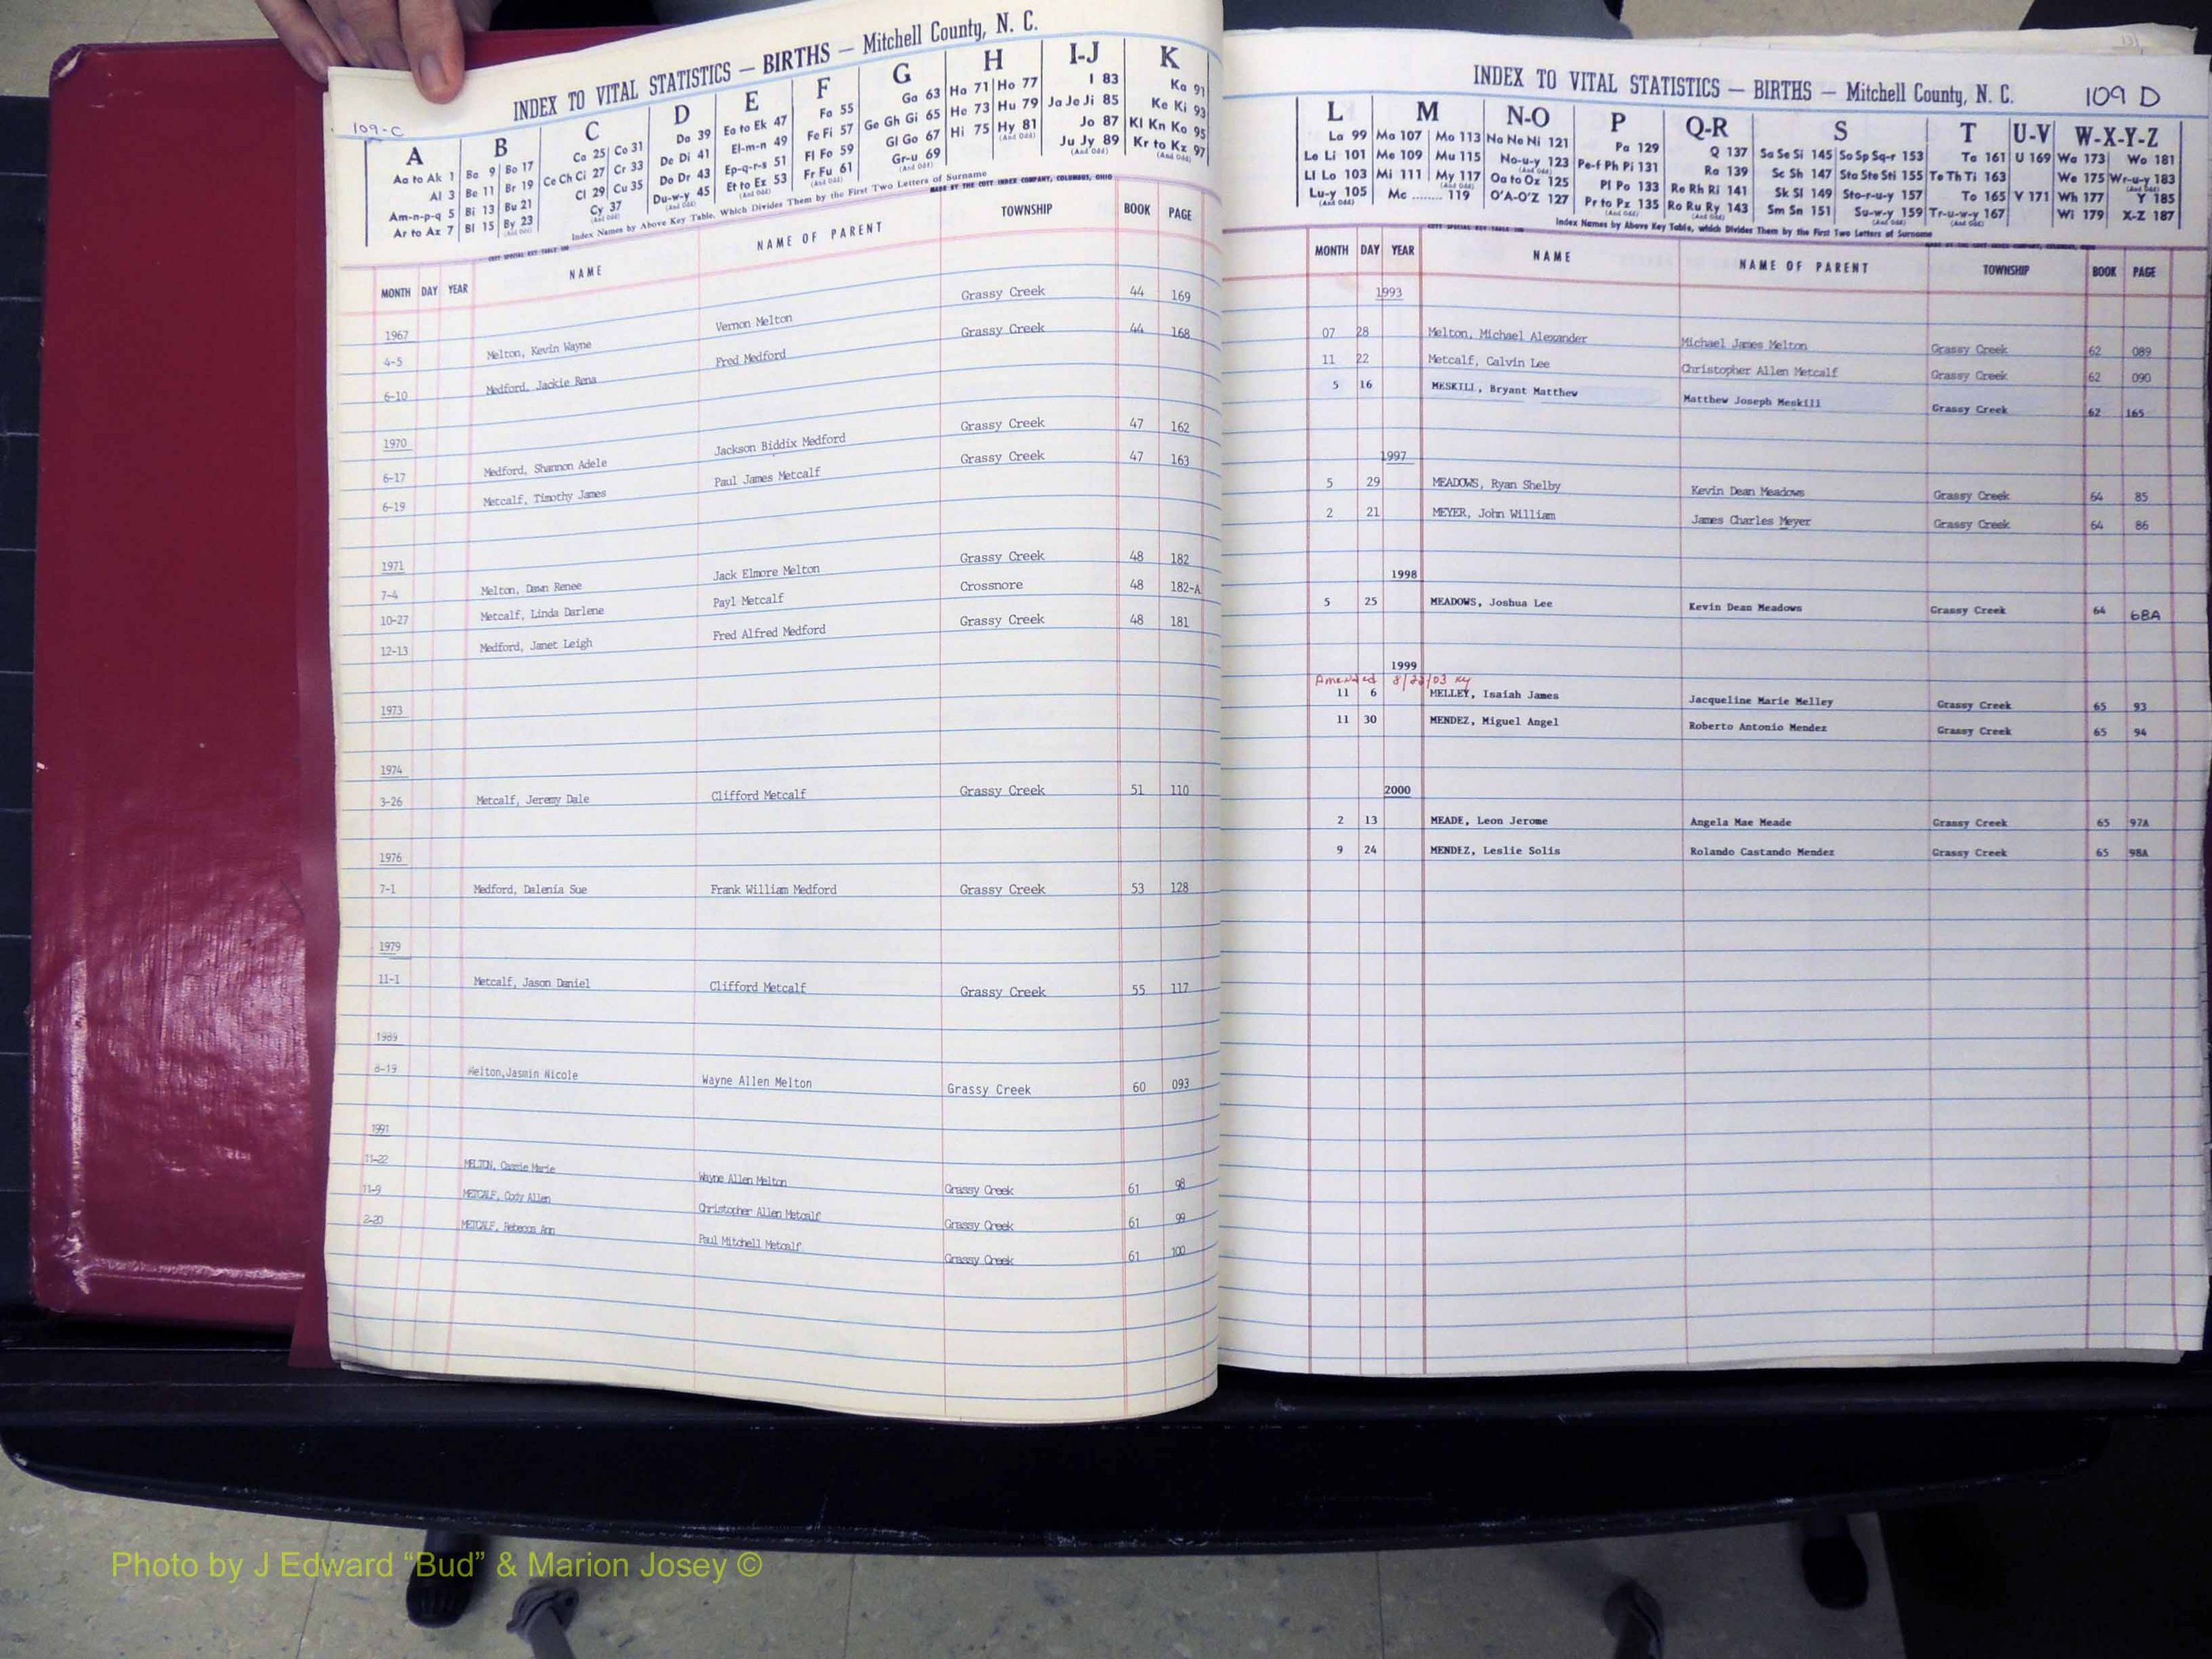 109-C
INDEX TO VITAL STATISTICS — BIRTHS — Mitchell County, N. C.
A B C D E F G H I-J K
Aa to Ak 1 Ba 9 Bo 17 Ca 25 Co 31 Da 39 Ea to Ek 47 Fa 55 Ga 63 Ha 71 Ho 77 I 83 Ka 91
Al 3 Be 11 Br 19 Ce Ch Ci 27 Cr 33 De Di 41 El-m-n 49 Fe Fi 57 Ge Gh Gi 65 He 73 Hu 79 Ja Je Ji 85 Ke Ki 93
Am-n-p-q 5 Bi 13 Bu 21 Cl 29 Cu 35 Do Dr 43 Ep-q-r-s 51 Fl Fo 59 Gl Go 67 Hi 75 Hy 81 (And Odd) Jo 87 Kl Kn Ko 95
Ar to Az 7 Bl 15 By 23 (And Odd) Cy 37 (And Odd) Du-w-y 45 (And Odd) Et to Ez 53 (And Odd) Fr Fu 61 (And Odd) Gr-u 69 (And Odd) Ju Jy 89 (And Odd) Kr to Kz 97 (And Odd)
Index Names by Above Key Table, Which Divides Them by the First Two Letters of Surname
MADE BY THE COTT INDEX COMPANY, COLUMBUS, OHIO
MONTH DAY YEAR NAME NAME OF PARENT TOWNSHIP BOOK PAGE
1967
4-5 Melton, Kevin Wayne Vernon Melton Grassy Creek 44 169
6-10 Medford, Jackie Rena Fred Medford Grassy Creek 44 168
1970
6-17 Medford, Shannon Adele Jackson Biddix Medford Grassy Creek 47 162
6-19 Metcalf, Timothy James Paul James Metcalf Grassy Creek 47 163
1971
7-4 Melton, Dawn Renee Jack Elmore Melton Grassy Creek 48 182
10-27 Metcalf, Linda Darlene Payl Metcalf Crossnore 48 182-A
12-13 Medford, Janet Leigh Fred Alfred Medford Grassy Creek 48 181
1973
1974
3-26 Metcalf, Jeremy Dale Clifford Metcalf Grassy Creek 51 110
1976
7-1 Medford, Dalenia Sue Frank William Medford Grassy Creek 53 128
1979
11-1 Metcalf, Jason Daniel Clifford Metcalf Grassy Creek 55 117
1989
8-19 Melton,Jasmin Nicole Wayne Allen Melton Grassy Creek 60 093
1991
11-22 MELTON, Cassie Marie Wayne Allen Melton Grassy Creek 61 98
11-9 METCALF, Cody Allen Christopher Allen Metcalf Grassy Creek 61 99
2-20 METCALF, Rebecca Ann Paul Mitchell Metcalf Grassy Creek 61 100
INDEX TO VITAL STATISTICS — BIRTHS — Mitchell County, N. C. 109 D
L M N-O P Q-R S T U-V W-X-Y-Z
La 99 Ma 107 Mo 113 Na Ne Ni 121 Pa 129 Q 137 Sa Se Si 145 So Sp Sq-r 153 Ta 161 U 169 Wa 173 Wo 181
Le Li 101 Me 109 Mu 115 No-u-y 123 (And Odd) Pe-f Ph Pi 131 Ra 139 Sc Sh 147 Sta Ste Sti 155 Te Th Ti 163 We 175 Wr-u-y 183 (And Odd)
Ll Lo 103 Mi 111 My 117 (And Odd) Oa to Oz 125 Pl Po 133 Re Rh Ri 141 Sk Sl 149 Sto-r-u-y 157 To 165 V 171 Wh 177 Y 185
Lu-y 105 (And Odd) Mc ........ 119 O'A-O'Z 127 Pr to Pz 135 (And Odd) Ro Ru Ry 143 (And Odd) Sm Sn 151 Su-w-y 159 (And Odd) Tr-u-w-y 167 (And Odd) Wi 179 X-Z 187
Index Names by Above Key Table, which Divides Them by the First Two Letters of Surname
MONTH DAY YEAR NAME NAME OF PARENT TOWNSHIP BOOK PAGE
1993
07 28 Melton, Michael Alexander Michael James Melton Grassy Creek 62 089
11 22 Metcalf, Calvin Lee Christopher Allen Metcalf Grassy Creek 62 090
5 16 MESKILL, Bryant Matthew Matthew Joseph Meskill Grassy Creek 62 165
1997
5 29 MEADOWS, Ryan Shelby Kevin Dean Meadows Grassy Creek 64 85
2 21 MEYER, John William James Charles Meyer Grassy Creek 64 86
1998
5 25 MEADOWS, Joshua Lee Kevin Dean Meadows Grassy Creek 64 68A
1999
Amended 8/22/03 
11 6 MELLEY, Isaiah James Jacqueline Marie Melley Grassy Creek 65 93
11 30 MENDEZ, Miguel Angel Roberto Antonio Mendez Grassy Creek 65 94
2000
2 13 MEADE, Leon Jerome Angela Mae Meade Grassy Creek 65 97A
9 24 MENDEZ, Leslie Solis Rolando Castando Mendez Grassy Creek 65 98A
Photo by J Edward “Bud” & Marion Josey ©